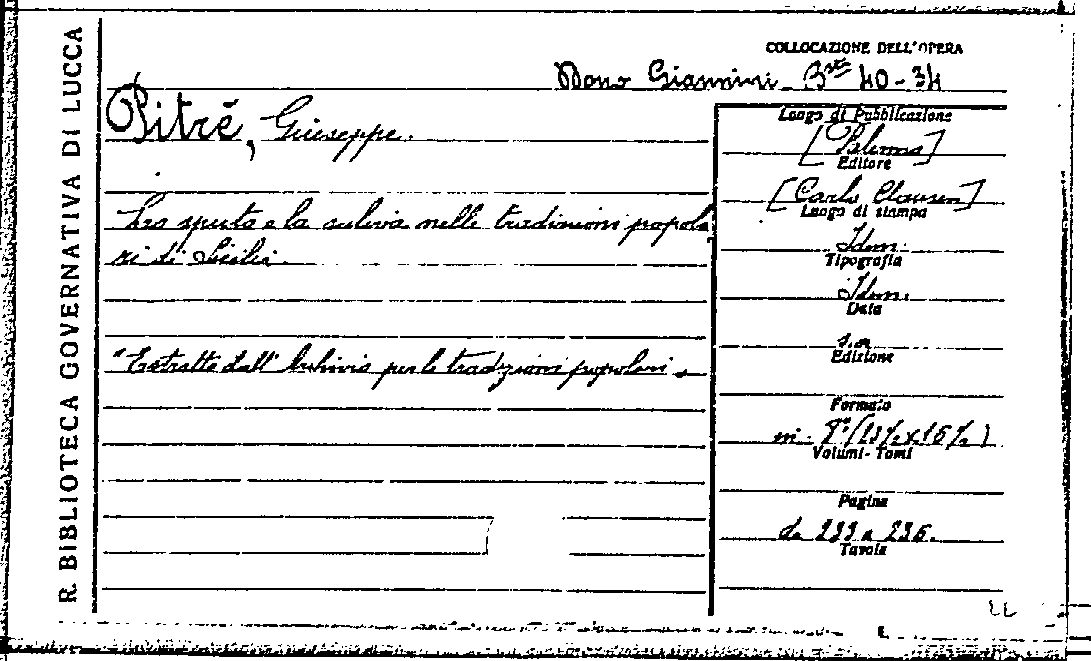 R. BIBLIOTECA GOVERNATIVA DI LUCCA
COLLOCAZIONE DELL'OPERA
Dono Giannini Bta 40-34
Pitré, Giuseppe.
Lo sputo e la saliva nelle tradizioni popola
ri di Sicilia.
"Estratto dall'Archivio per le tradizioni popolari"
Luogo di Pubblicazione
[Palermo]
Editore
[Carlo Clausen]
Luogo di stampa
Idem.
Tipografia
Idem.
Data
s.a
Edizione
Formato
in-8°
Volumi-Tomi
Pagine
da 233 a 236.
Tavole